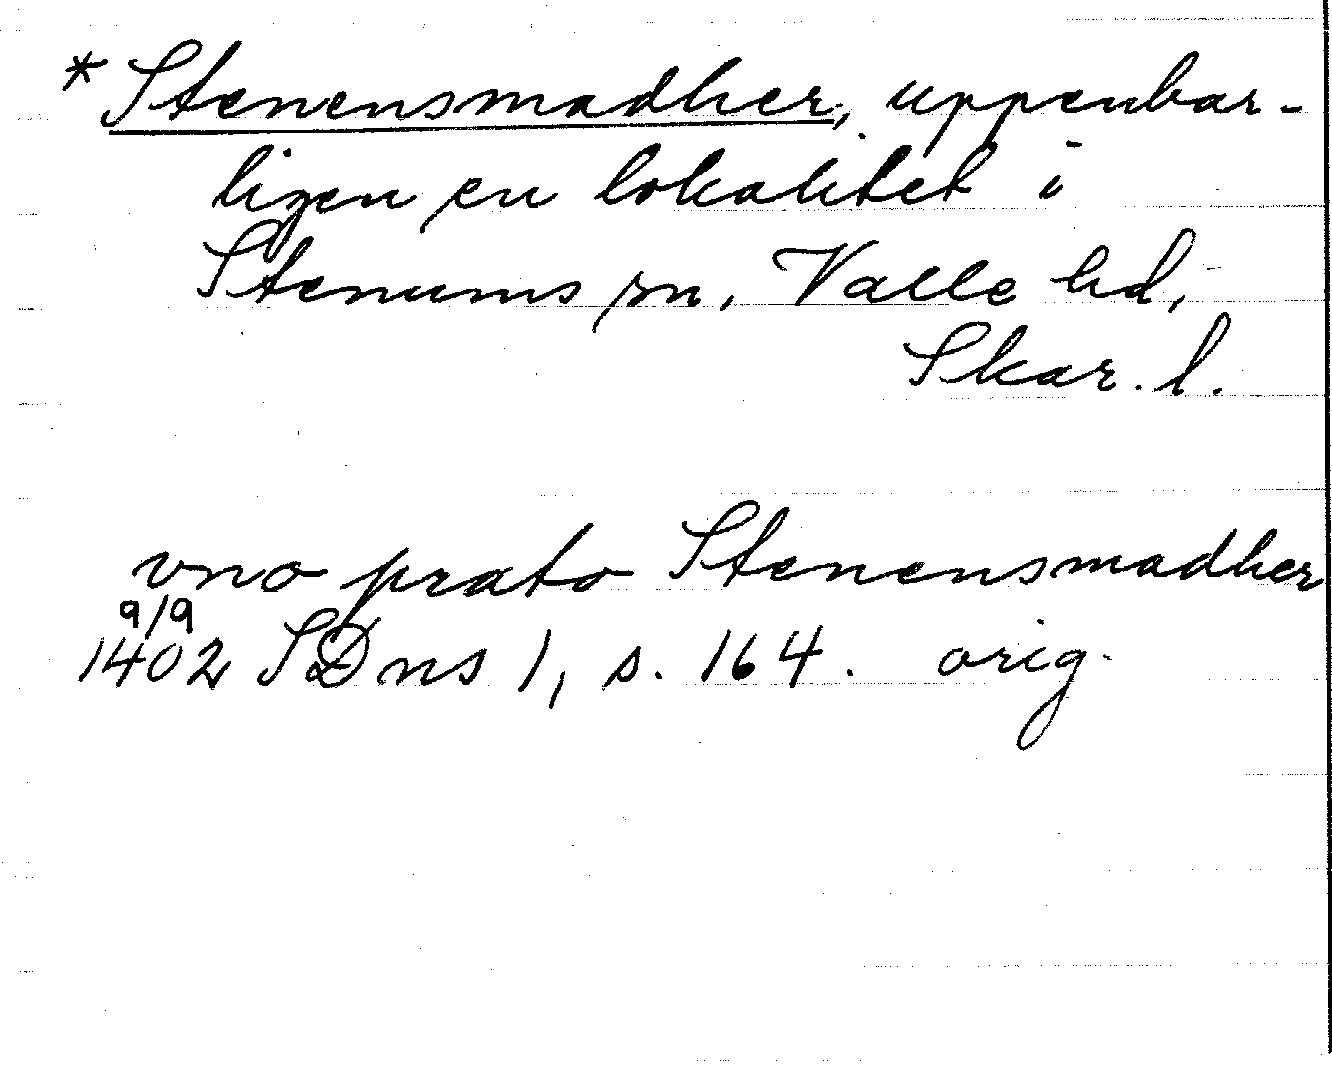 *Stenensmadher, uppenbar-
ligen en lokalitet i
Stenums sn, Valle hd,
Skar. l.
vno prato Stenensmadher
9/9
1402 SDns 1, s. 164. orig.